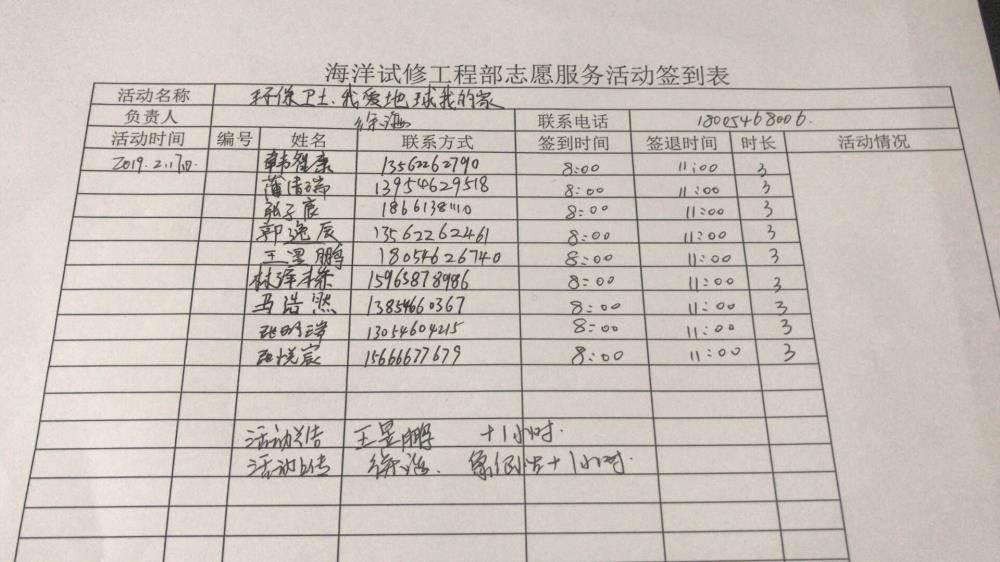 海洋试修工程部志愿服务活动签到表
活动名称 环保卫士.我爱地球我的家
负责人 徐海 联系电话 18005468006.
活动时间 编号 姓名 联系方式 签到时间 签退时间 时长 活动情况
2019.2.17日. 韩智康 13562262790 8:00 11:00 3
13954629518 8:00 11:00 3
张子宸 18661384110 8:00 11:00 3
郭逸辰 13562262461 8:00 11:00 3
王昱鹏 18054626740 8:00 11:00 3
林泽 15963878986 8:00 11:00 3
马浩然 13854660367 8:00 11:00 3
张明 13054604215 8:00 11:00 3
张悦宸 15666677679 8:00 11:00 3
活动 王昱鹏 +1小时.
活动上传 徐海. +1小时.